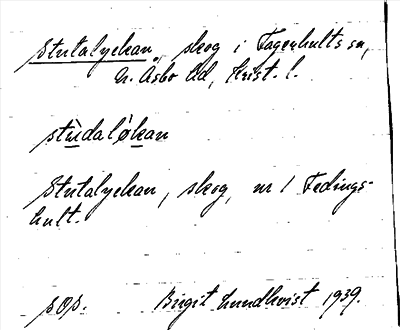 Stutalyckan, skog i Fagerhults sn,
N. Åsbo hd, Krist. l.
stùdaløkan
Stutalyckan, skog, nr 1 Fedings-
hult.
sOp. Birgit Lundkvist 1939.